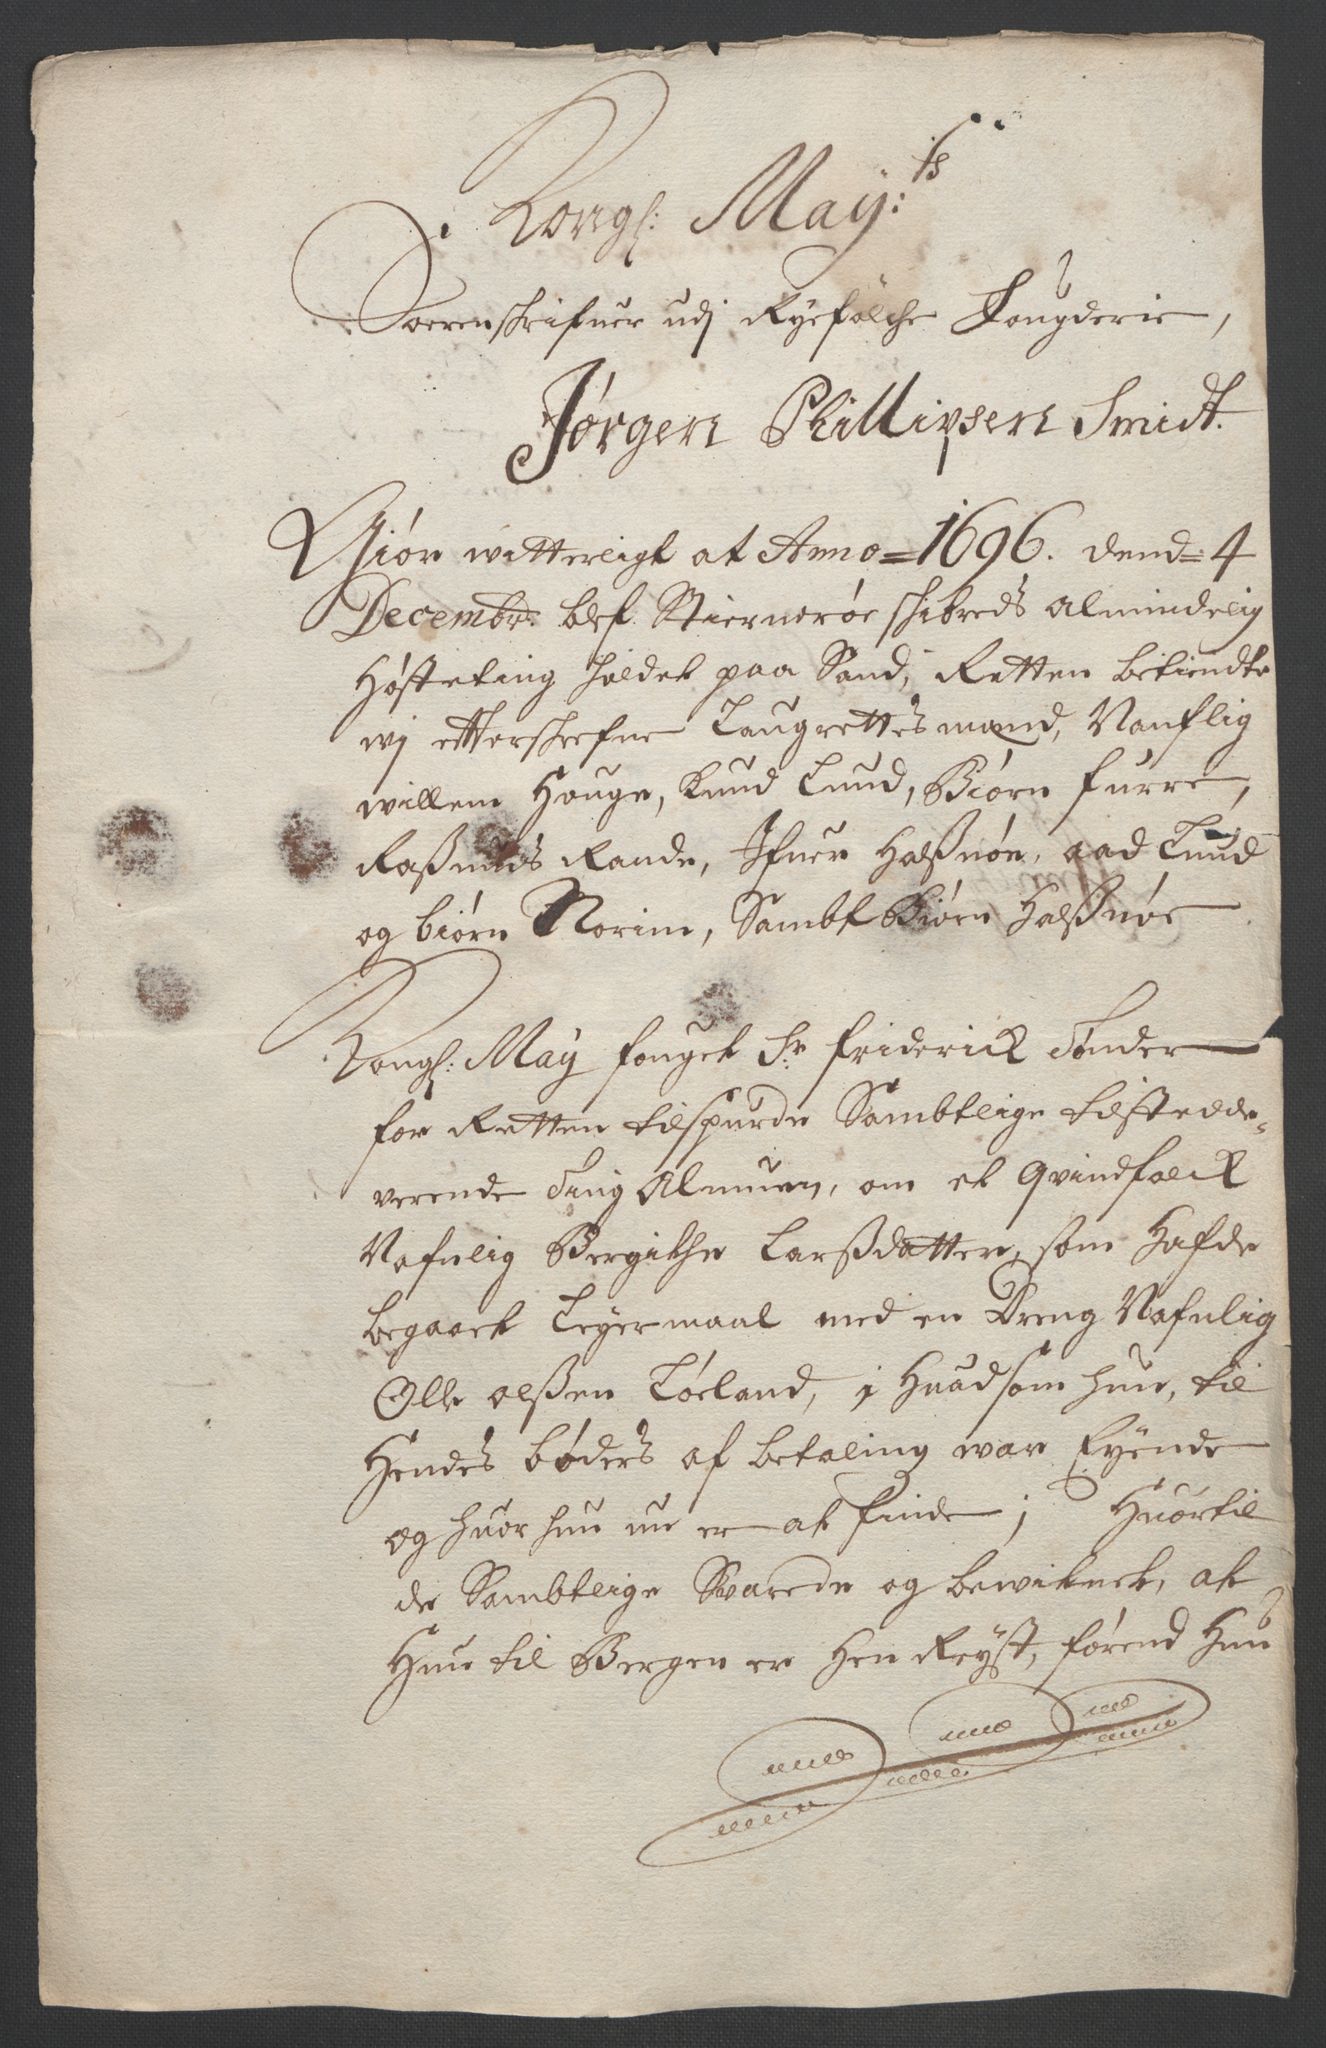 Kongl: May:ts
Soerenskrifuer udj Ryefølche Fougderie,
Jørgen Phillipsen Smidt.
Giør witterligt at Anno = 1696. dend = 4
Decembr: blef Stiernerøe skibreds almindelig
Høsteting holdet paa Sand, Retten bekiendte
wj effterskrefne Laugrettes mænd, Nanflig
willem Houge, Knud Lund, Biørn furre,
Raßmus Rande, Ifuer Halßnøe, aad Lund
og biørn Norim, Sambt Biørn Halßnøe
Kongl: May fouget Sr. friderick Tønder
for Retten tilspurde Sambtlige tilstedde=
verende Ting Almuen, om et Qvindfolck
Nafnlig Bergithe Larßdatter, som Hafde
begaaet Leyermaal med en Dreng Nafnlig
Olle olßen Løeland, i Huad som hun, til
Hendes bøders af betaling war Eyende
og huor hun nu er at finde; Huortil
de Sambtlige Svarede og bewitnet, at
Hun til Bergen er Hen Reyst, førend Hun